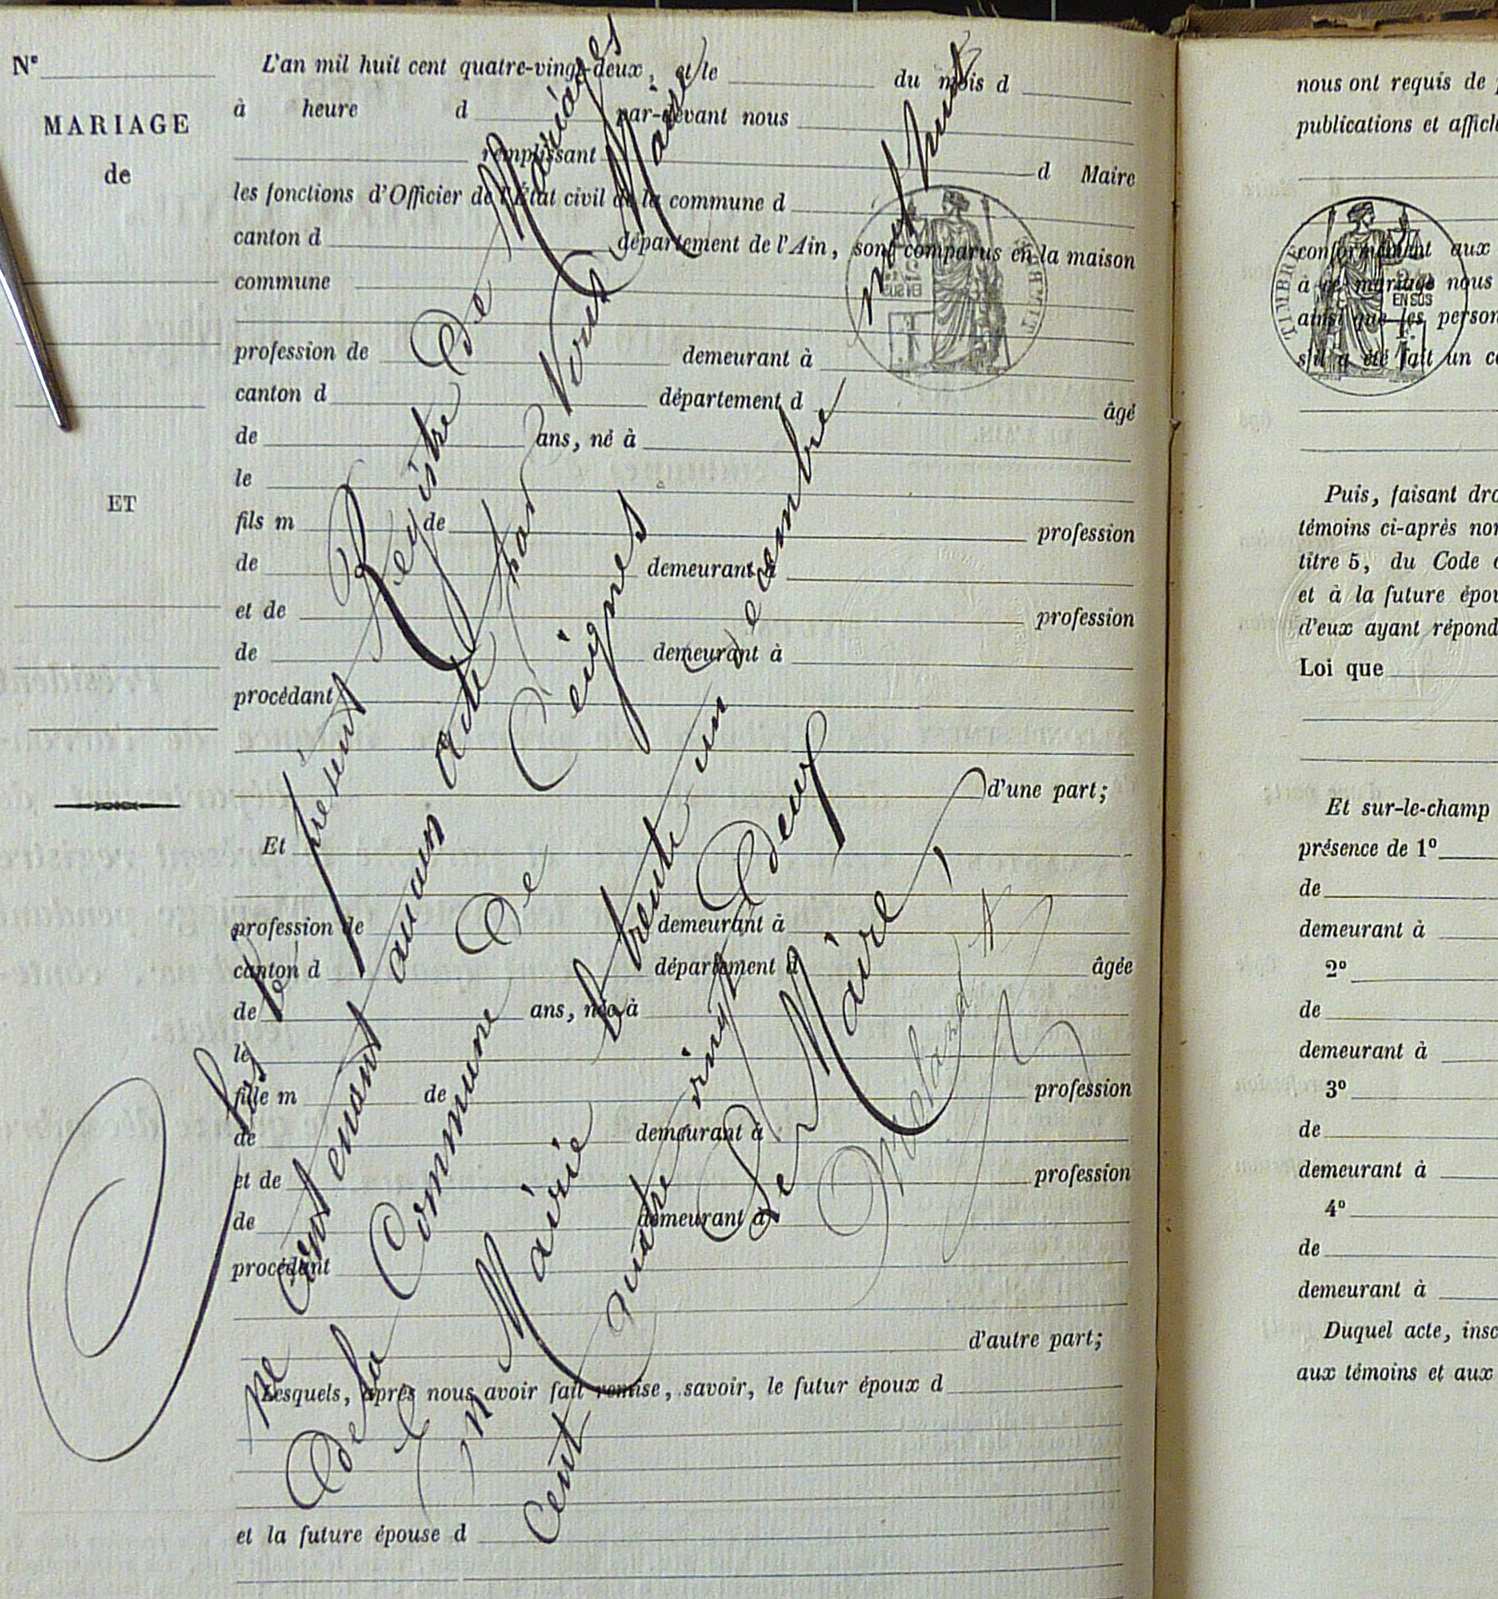 N°
MARIAGE
de
ET
L'an mil huit cent quatre-vingt-deux, et le du mois d
à heure d par-devant nous
remplissant d Maire
les fonctions d'Officier de l'État civil de la commune d
canton d département de l'Ain, sont comparus en la maison
commune
profession de demeurant à
canton d département d âgé
de ans, né à
le
fils m de profession
de demeurant à
et de profession
de demeurant à
procédant
d'une part;
Et
profession de demeurant à
canton d département d âgée
de ans, née à
le
fille m de profession
de demeurant à
et de profession
de demeurant à
procédant
d'autre part;
Lesquels, après nous avoir fait remise, savoir, le futur époux d
et la future épouse d
le présent Registre de Mariages
ne contenant aucun acte par Nous Maire
de la Commune de Ceignes
En Mairie le trente un Décembre mil huit
cent quatre vingt Deux
Le Maire,
nous ont requis de
publications et affich
TIMBRE
EN SUS
conformément aux
à ce mariage nous
ainsi que les person
s'il a été fait un co
Puis, faisant dro
témoins ci-après nom
titre 5, du Code
et à la future épou
d'eux ayant répond
Loi que
Et sur-le-champ
présence de 1°
de
demeurant à
2°
de
demeurant à
3°
de
demeurant à
4°
de
demeurant à
Duquel acte, insc
aux témoins et aux